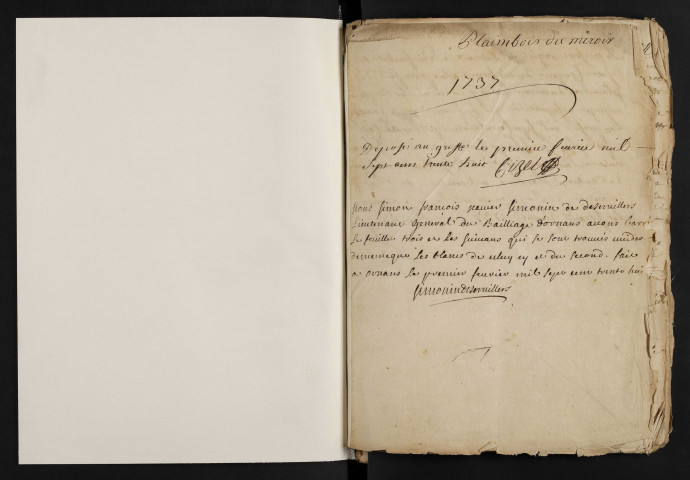 Plaimbois du miroir
1737
Deposé au greffe les premier feuvrier mil
sept cens trente huit Cizel
Nous Simon françois Xavier Simonin de deservillers
Lieutenant General du Bailliage d'ornans avons barré
le feuillet trois et les suivans qui se sont trouvés inutiles
de meme que les blancs de celuy cy et du second. fait
a ornans le premier feuvrier mil sept cent trente huit
Simonin deservillers